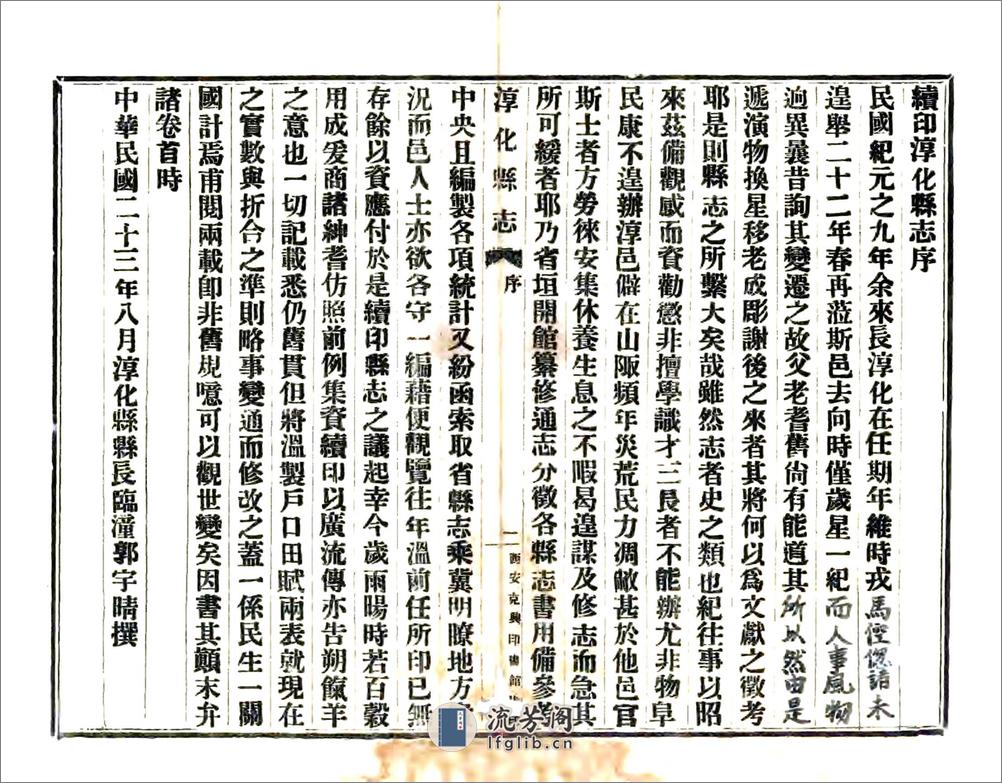 續印淳化縣志序
民國紀元之九年余來長淳化在任期年維時戎馬倥傯諸未
遑舉二十二年春再蒞斯邑去向時僅歲星一紀而人事風物
逈異曩昔詢其變遷之故父老耆舊尚有能道其所以然由是
遞演物換星移老成彫謝後之來者其將何以為文獻之徵考
耶是則縣志之所繫大矣哉雖然志者史之類也紀往事以昭
來茲備觀感而資勸懲非擅學識才三長者不能辦尤非物阜
民康不遑辦淳邑僻在山陬頻年災荒民力凋敝甚於他邑官
斯士者方勞徠安集休養生息之不暇曷遑謀及修志而急其
所可緩者耶乃省垣開館纂修通志分徵各縣志書用備參
淳化縣志 序 一 西安克興印書館
中央且編製各項統計又紛函索取省縣志乘冀明瞭地方
況而邑人士亦欲各守一編藉便觀覽往年溫前任所印已無
存餘以資應付於是續印縣志之議起幸今歲雨暘時若百穀
用成爰商諸紳耆仿照前例集資續印以廣流傳亦告朔餼羊
之意也一切記載悉仍舊貫但將溫製戶口田賦兩表就現在
之實數與折合之準則略事變通而修改之蓋一係民生一關
國計焉甫閱兩載卽非舊規噫可以觀世變矣因書其顛末弁
諸卷首時
中華民國二十三年八月淳化縣縣長臨潼郭宇晴撰
流芳閣
lfglib.cn